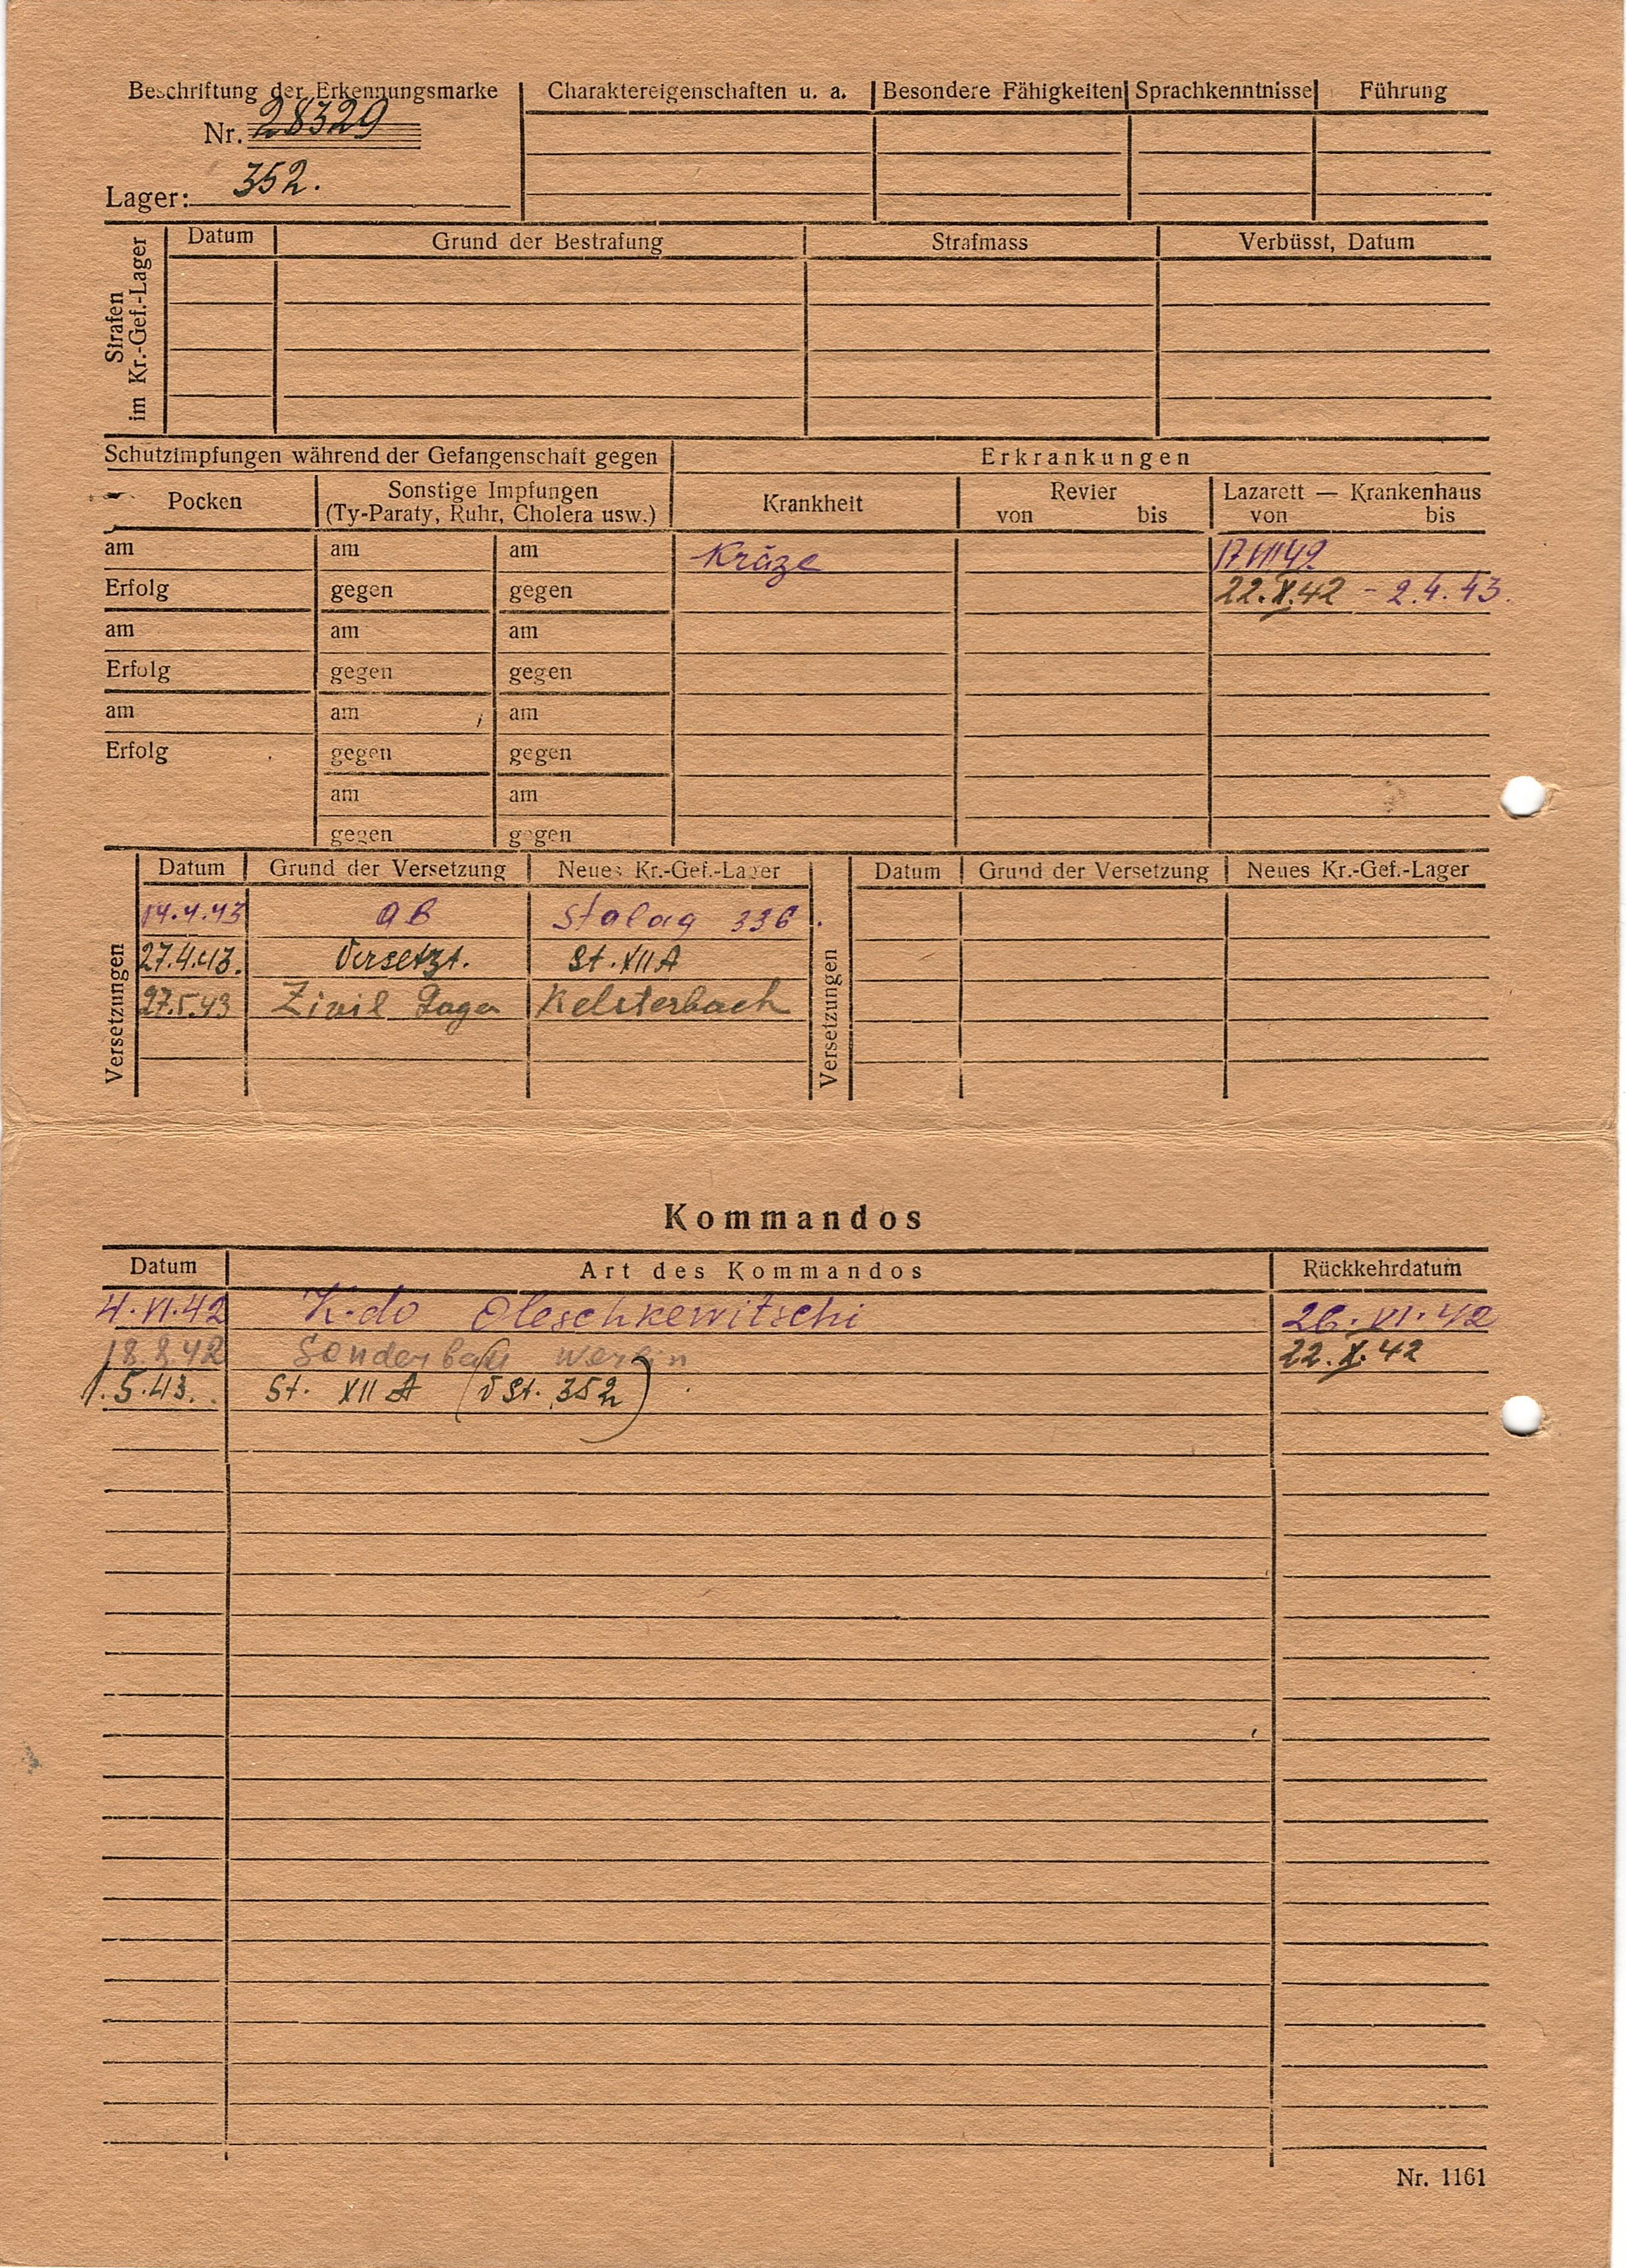 Beschriftung der Erkennungsmarke
Nr. 28329
Lager: 352.
Charaktereigenschaften u. a.
Besondere Fähigkeiten
Sprachkenntnisse
Führung
Strafen
im Kr.-Gef.-Lager
Datum
Grund der Bestrafung
Strafmass
Verbüsst, Datum
Schutzimpfungen während der Gefangenschaft gegen
Erkrankungen
Pocken
Sonstige Impfungen
(Ty-Paraty, Ruhr, Cholera usw.)
Krankheit
Revier
von bis
Lazarett — Krankenhaus
von bis
am am am Kräze 17.VIII 42.
Erfolg gegen gegen 22.X.42 - 2.4.43.
am am am
Erfolg gegen gegen
am am am
Erfolg gegen gegen
am am
gegen gegen
Versetzungen
Datum Grund der Versetzung Neues Kr.-Gef.-Lager
14.4.43 Stalag 336.
27.4.43. Versetzt. St. XII A
27.5.43 Zivil Lager Kelsterbach
Versetzungen
Datum Grund der Versetzung Neues Kr.-Gef.-Lager
Kommandos
Datum Art des Kommandos Rückkehrdatum
4.VI.42 K-do Oleschkewitschi 26.VI.42
18.8.42 Sonderbau 22.X.42
1.5.43. St. XII A (v St. 352)
Nr. 1161